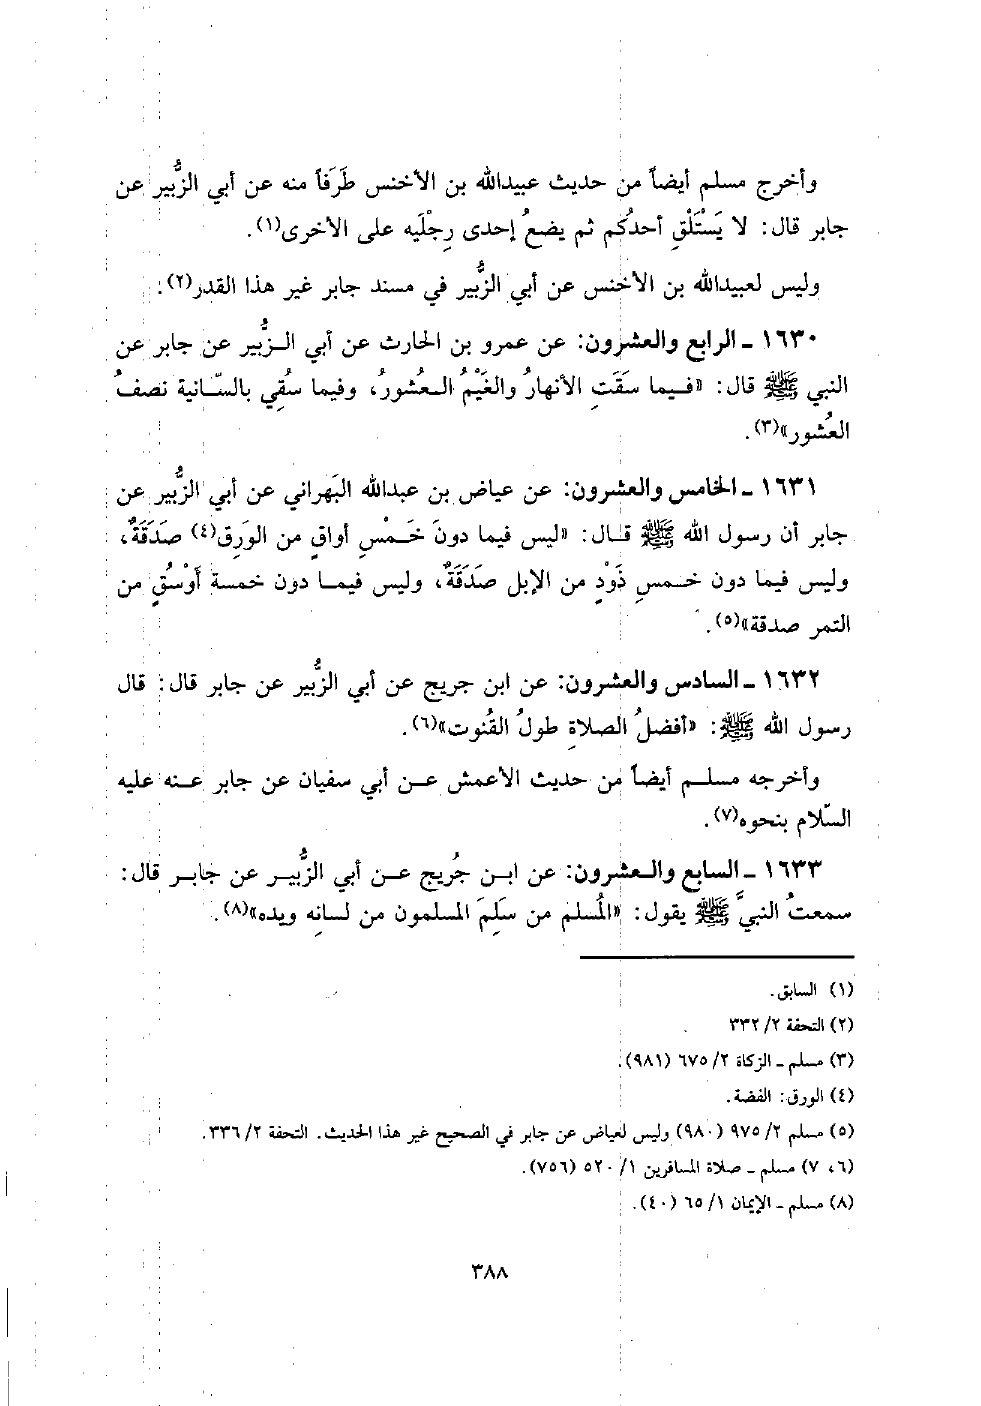 وأخرج مسلم أيضاً من حديث عبيدالله بن الأخنس طَرَفاً منه عن أبي الزُّبير عن
جابر قال: لا يَسْتَلْقِ أحدُكم ثم يضعُ إحدى رِجْلَيه على الأخرى(١).
وليس لعبيدالله بن الأخنس عن أبي الزُّبير في مسند جابر غير هذا القدر(٢).
١٦٣٠ ـ الرابع والعشرون: عن عمرو بن الحارث عن أبي الزُّبير عن جابر عن
النبي ﷺ قال: «فيما سَقَتِ الأنهارُ والغَيْمُ العُشورُ، وفيما سُقِي بالسّانية نصفُ
العُشور»(٣).
١٦٣١ ـ الخامس والعشرون: عن عياض بن عبدالله البَهراني عن أبي الزُّبير عن
جابر أن رسول الله ﷺ قال: «ليس فيما دونَ خَمْسِ أواقٍ من الوَرِق(٤) صَدَقَةٌ،
وليس فيما دون خمسِ ذَوْدٍ من الإبل صَدَقَةٌ، وليس فيما دون خمسة أَوْسُقٍ من
التمر صدقة»(٥).
١٦٣٢ ـ السادس والعشرون: عن ابن جريج عن أبي الزُّبير عن جابر قال: قال
رسول الله ﷺ: «أفضلُ الصلاةِ طولُ القُنوت»(٦).
وأخرجه مسلم أيضاً من حديث الأعمش عن أبي سفيان عن جابر عنه عليه
السّلام بنحوه(٧).
١٦٣٣ ـ السابع والعشرون: عن ابن جُريج عن أبي الزُّبير عن جابر قال:
سمعتُ النبيَّ ﷺ يقول: «المُسلم من سَلِمَ المسلمون من لسانِه ويده»(٨).
(١) السابق.
(٢) التحفة ٢/ ٣٣٢
(٣) مسلم ـ الزكاة ٢/ ٦٧٥ (٩٨١).
(٤) الورق: الفضة.
(٥) مسلم ٢/ ٩٧٥ (٩٨٠) وليس لعياض عن جابر في الصحيح غير هذا الحديث. التحفة ٢/ ٣٣٦.
(٦، ٧) مسلم ـ صلاة المسافرين ١/ ٥٢٠ (٧٥٦).
(٨) مسلم ـ الإيمان ١/ ٦٥ (٤٠).
٣٨٨